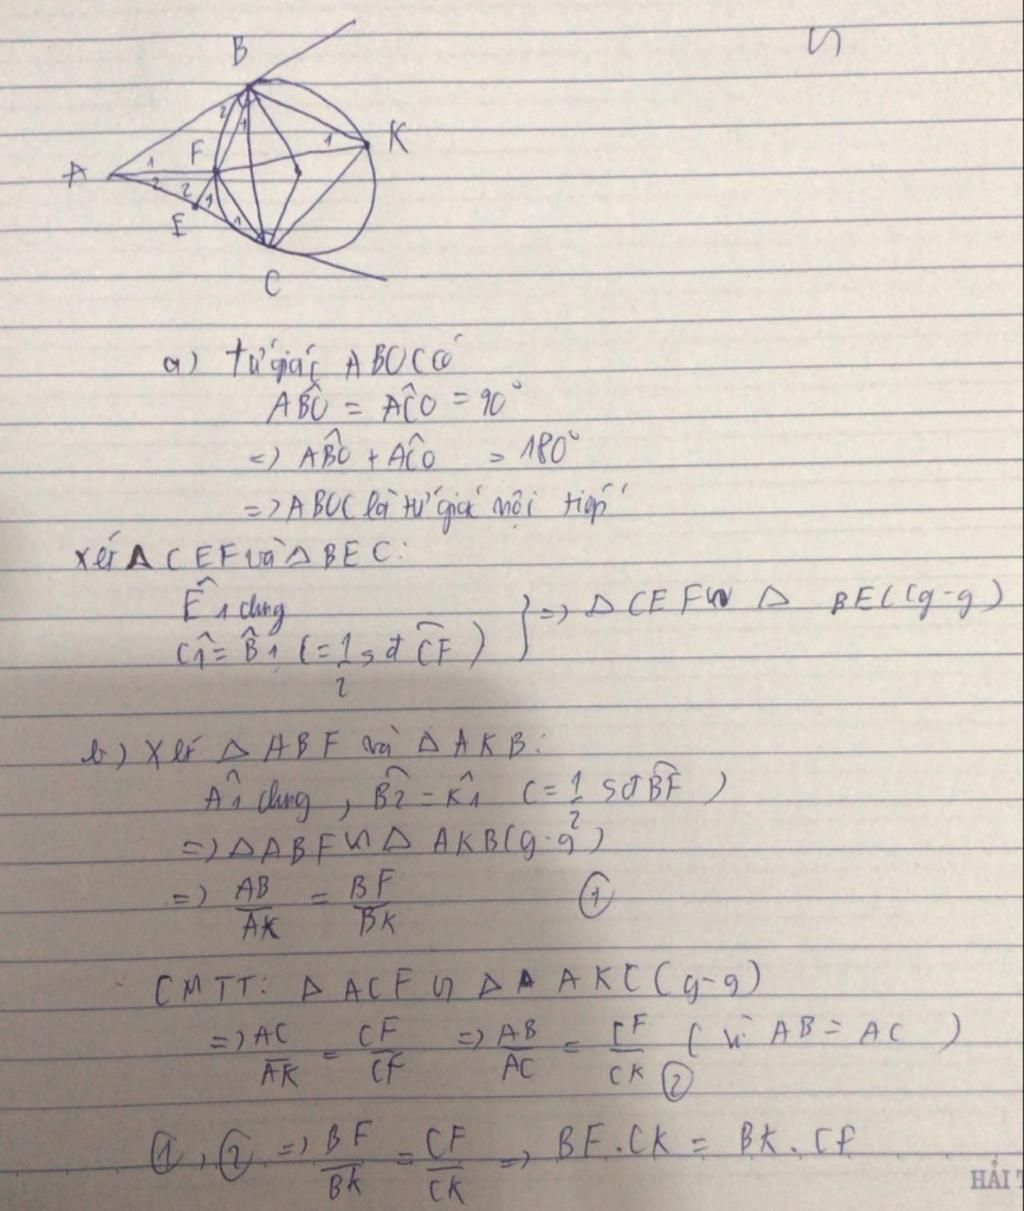 B
K
A
F
E
C
1
2
1
1
2
2
1
1
a) tứ giác ABOC có
AB̂O = AĈO = 90°
=> AB̂O + AĈO = 180°
=> ABOC là tứ giác nội tiếp
Xét Δ CEF và Δ BEC:
Ê1 chung
Ĉ1 = B̂1 (= 1/2 sđ CF) } => Δ CEF ∽ Δ BEC (g-g)
b) Xét Δ ABF và Δ AKB:
Â1 chung, B̂2 = K̂1 (= 1/2 sđ BF)
=> Δ ABF ∽ Δ AKB (g-g)
=> AB/AK = BF/BK (1)
CMTT: Δ ACF ∽ Δ AKC (g-g)
=> AC/AK = CF/CF => AB/AC = CF/CK (vì AB = AC) (2)
(1), (2) => BF/BK = CF/CK => BF.CK = BK.CF
HẢI T